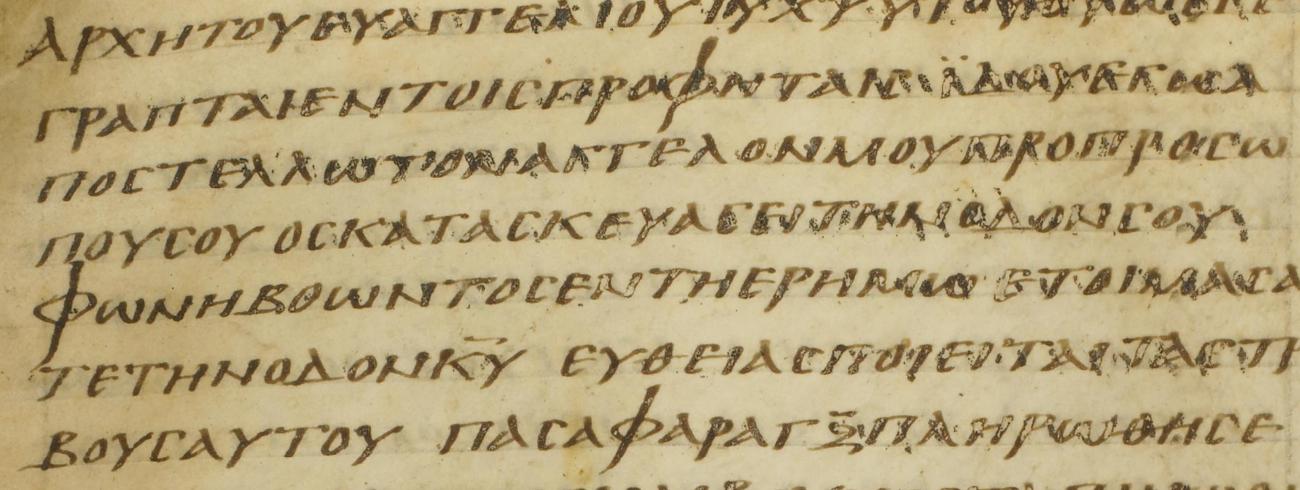 ΑΡΧΗΤΟΥΕΥΑΓΓΕΛΙΟΥΙΥΧΥΥΙΟΥ
ΓΡΑΠΤΑΙΕΝΤΟΙСΠΡΟΦΗΤΑΙС ΪΔΟΥΕΓΩΑ
ΠΟСΤΕΛΛΩΤΟΝΑΓΓΕΛΟΝΜΟΥΠΡΟΠΡΟСΩ
ΠΟΥСΟΥ ΟСΚΑΤΑСΚΕΥΑСΕΙΤΗΝΟΔΟΝСΟΥ
ΦΩΝΗΒΟΩΝΤΟСΕΝΤΗΕΡΗΜΩ ΕΤΟΙΜΑСΑ
ΤΕΤΗΝΟΔΟΝΚ̅Υ̅ ΕΥΘΕΙΑСΠΟΙΕΙΤΑΙ ΤΑСΤΡΙ
ΒΟΥСΑΥΤΟΥ ΠΑСΑΦΑΡΑΓΞΠΛΗΡΩΘΗСΕ